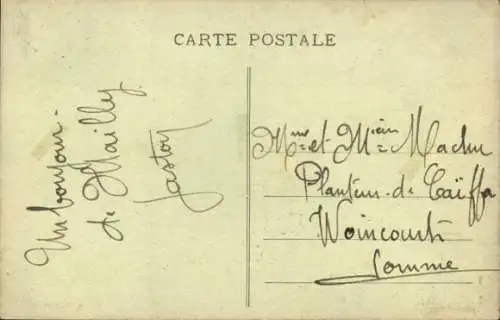 CARTE POSTALE
Un bonjour -
de Mailly.
Gaston
Mme et Mr Machu
Planteur de Caïffa
Woincourt
Somme